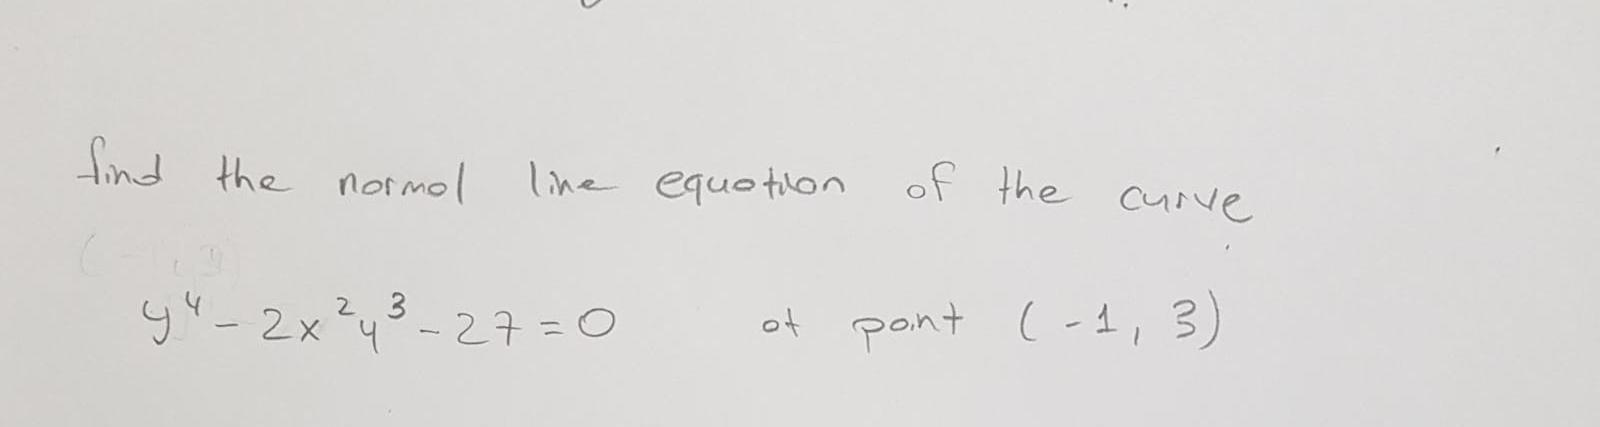 find the normal line equation of the curve
y⁴ - 2x²y³ - 27 = 0 at point (-1, 3)